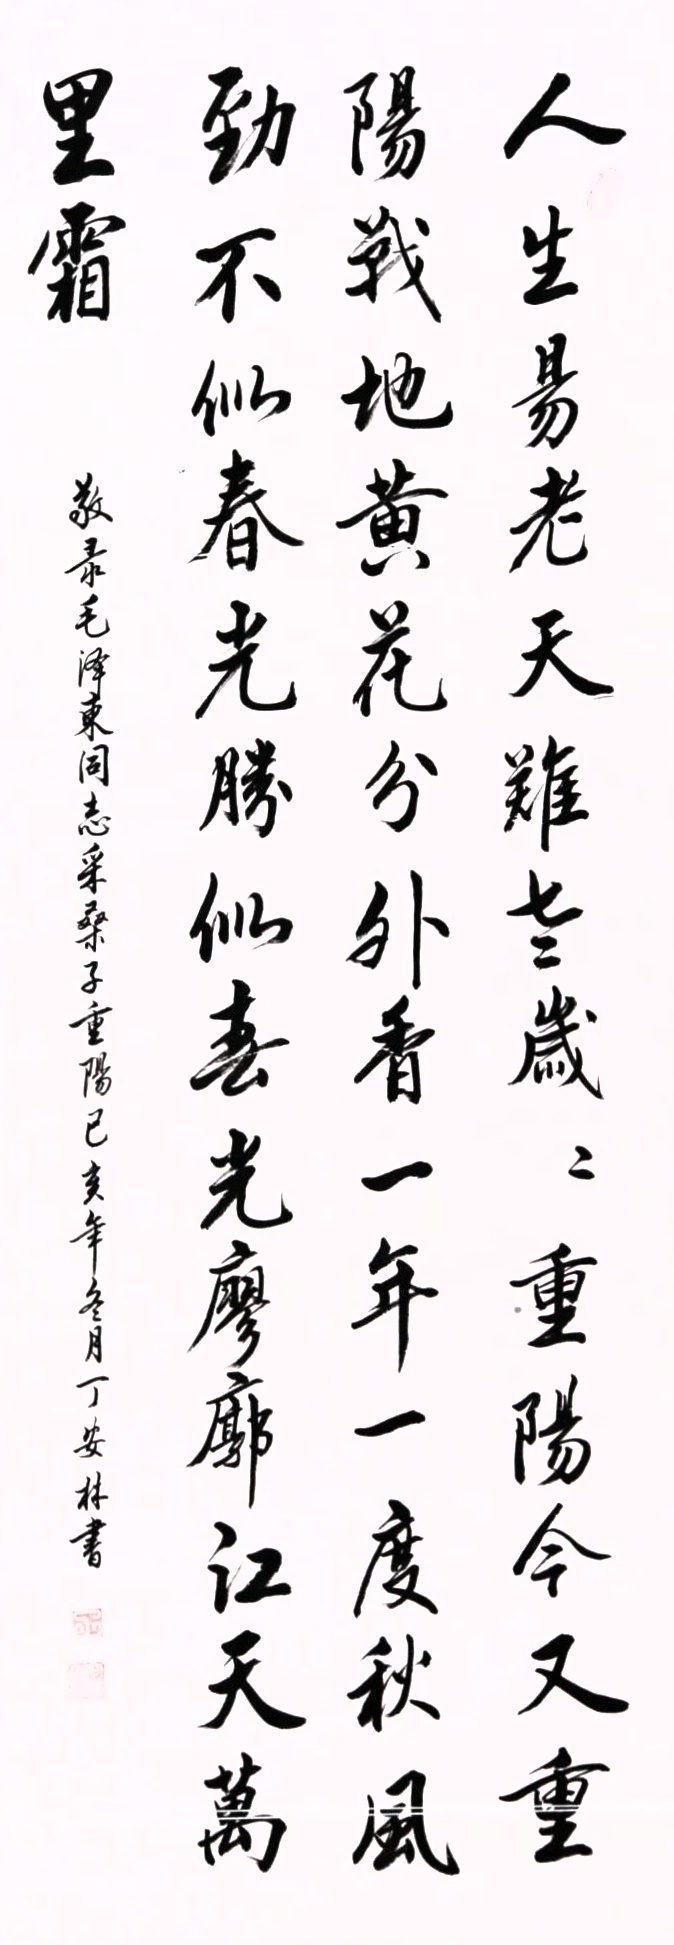 人生易老天難老歲〻重陽今又重
陽戰地黄花分外香一年一度秋風
勁不似春光勝似春光廖廓江天萬
里霜
敬录毛泽東同志采桑子重陽己亥年冬月丁安林書